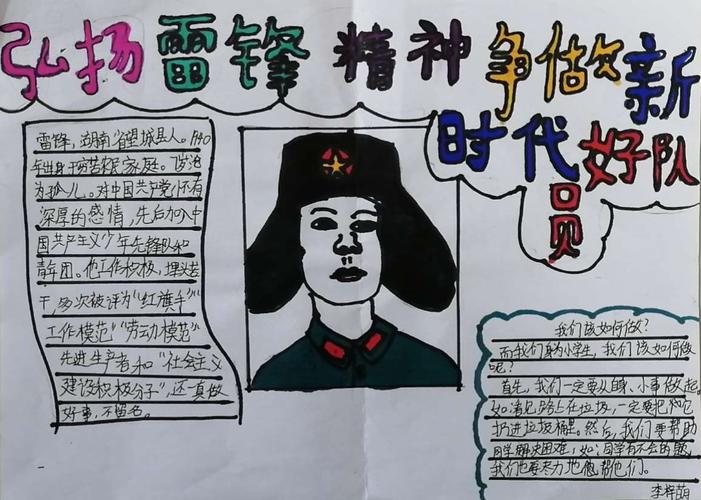 弘扬雷锋精神争做新
时代好队
员
雷锋，湖南省望城县人。1940
年出身于贫苦农家庭。7岁沦
为孤儿。对中国共产党怀有
深厚的感情，先后加入中
国共产主义少年先锋队和
青年团。他工作积极，埋头苦
干多次被评为“红旗手”
工作模范”“劳动模范”
先进生产者和“社会主义
建设积极分子”，还一直做
好事，不留名。
我们该如何做？
而我们身为小学生，我们该如何做
呢？
首先，我们一定要从自身、小事做起。
如：看见路上在垃圾，一定要把它
扔进垃圾桶里。然后，我们要帮助
同学解决困难，如：同学有不会的题，
我们也要尽力地他帮他们。
李梓萌